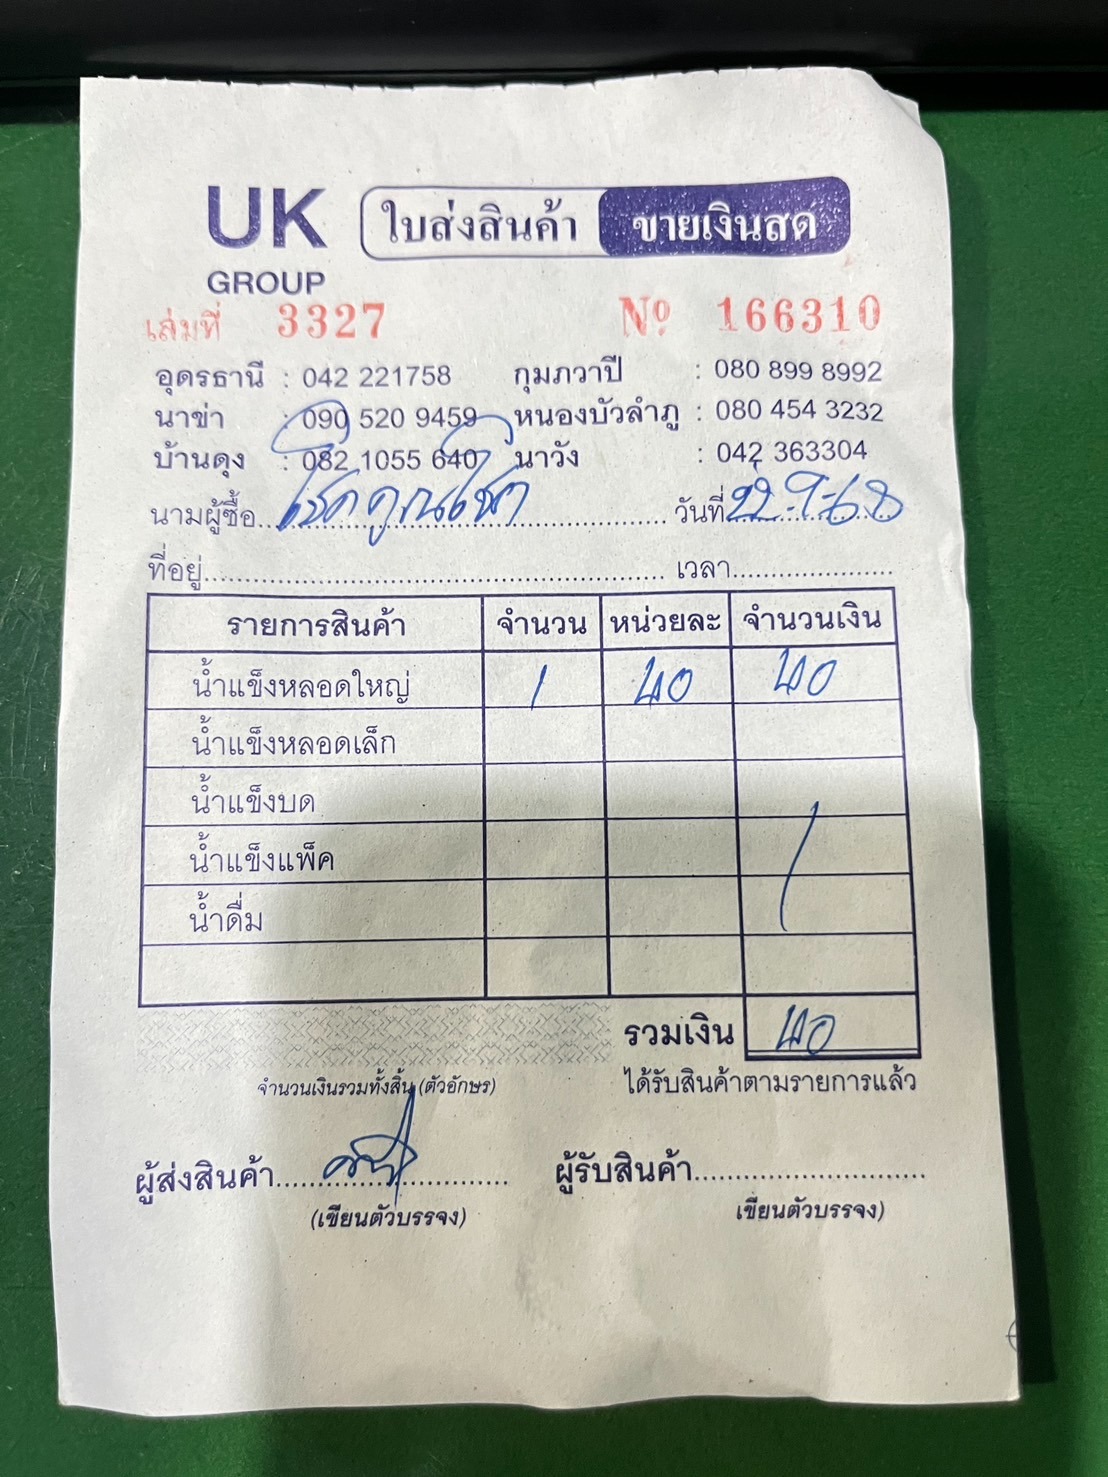 UK GROUP ใบส่งสินค้า ขายเงินสด
เล่มที่ 3327 Nº 166310
อุดรธานี : 042 221758 กุมภวาปี : 080 899 8992
นาข่า : 090 520 9459 หนองบัวลำภู : 080 454 3232
บ้านดุง : 082 1055 640 นาวัง : 042 363304
นามผู้ซื้อ โชคคูณโชค วันที่ 22-9-68
ที่อยู่ เวลา
รายการสินค้า จำนวน หน่วยละ จำนวนเงิน
น้ำแข็งหลอดใหญ่ 1 40 40
น้ำแข็งหลอดเล็ก
น้ำแข็งบด
น้ำแข็งแพ็ค
น้ำดื่ม
รวมเงิน 40
จำนวนเงินรวมทั้งสิ้น (ตัวอักษร) ได้รับสินค้าตามรายการแล้ว
ผู้ส่งสินค้า ผู้รับสินค้า
(เขียนตัวบรรจง) เขียนตัวบรรจง)